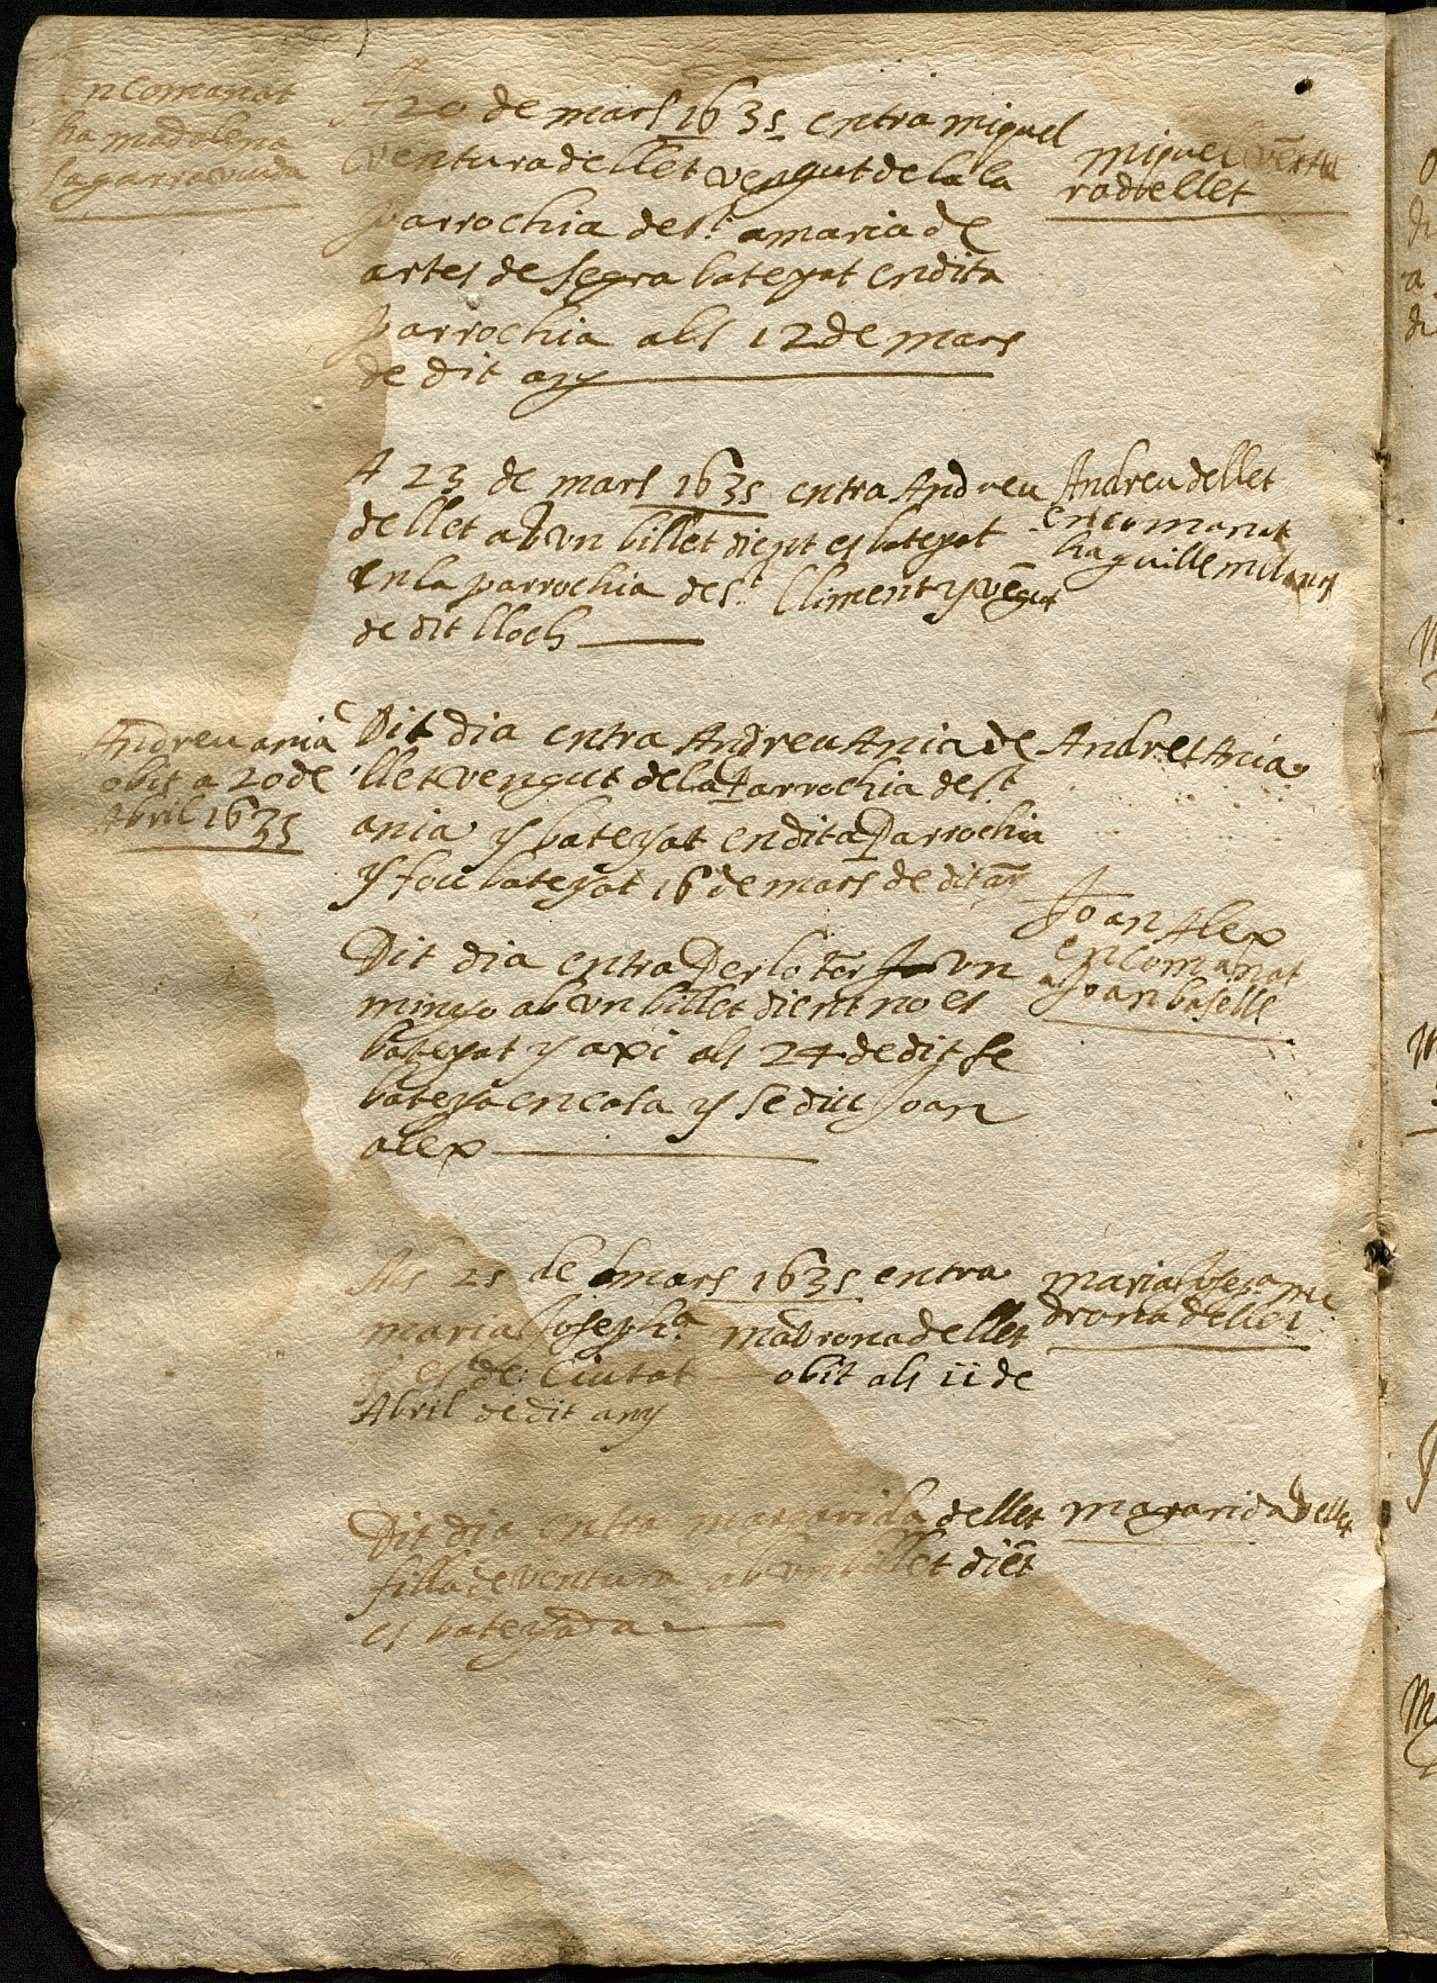 encomanat
ha madalena
sagarra viuda
A 20 de mars 1635 entra miquel
ventura de llet vengut de la la
parrochia de St.a maria de
artes de segra bateyat en dita
parrochia als 12 de mars
de dit any
miquel ventu
ra de llet
A 23 de mars 1635 entra Andreu
de llet ab vn billet dient es bateyat
en la parrochia de St. Climent y vēgut
de dit lloch
Andreu de llet
encomanat
ha guillem
Andreu aniā
obit a 20 de
Abril 1635
Dit dia entra Andreu Ania de
llet vengut de la Parrochia de St
ania y bateyat en dita Parrochia
y fou bateyat 16 de mars de dit añy
Andreu Ania
Dit dia entra Per lo torn vn
minyo ab vn billet dient no es
bateyat y axi als 24 de dit se
bateya en casa y se diu Joan
alex
Joan Alex
encomanat
a Joan baselle
Als 25 de mars 1635 entra
maria Josepha madrona de llet
y es de Ciutat obit als 11 de
Abril de dit any
maria Josepa ma
drona de llet
Dit dia entra margarida de llet
filla de ventura ab vn billet diēt
es bateyada
magarida de llet